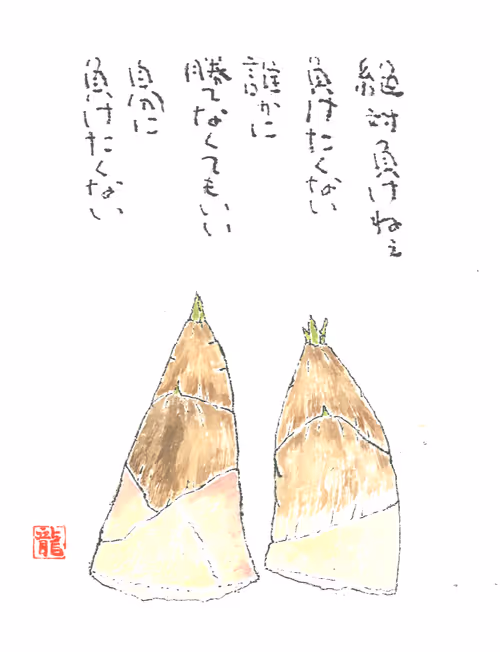 絶対負けねぇ
負けたくない
誰かに
勝てなくてもいい
自分に
負けたくない
龍